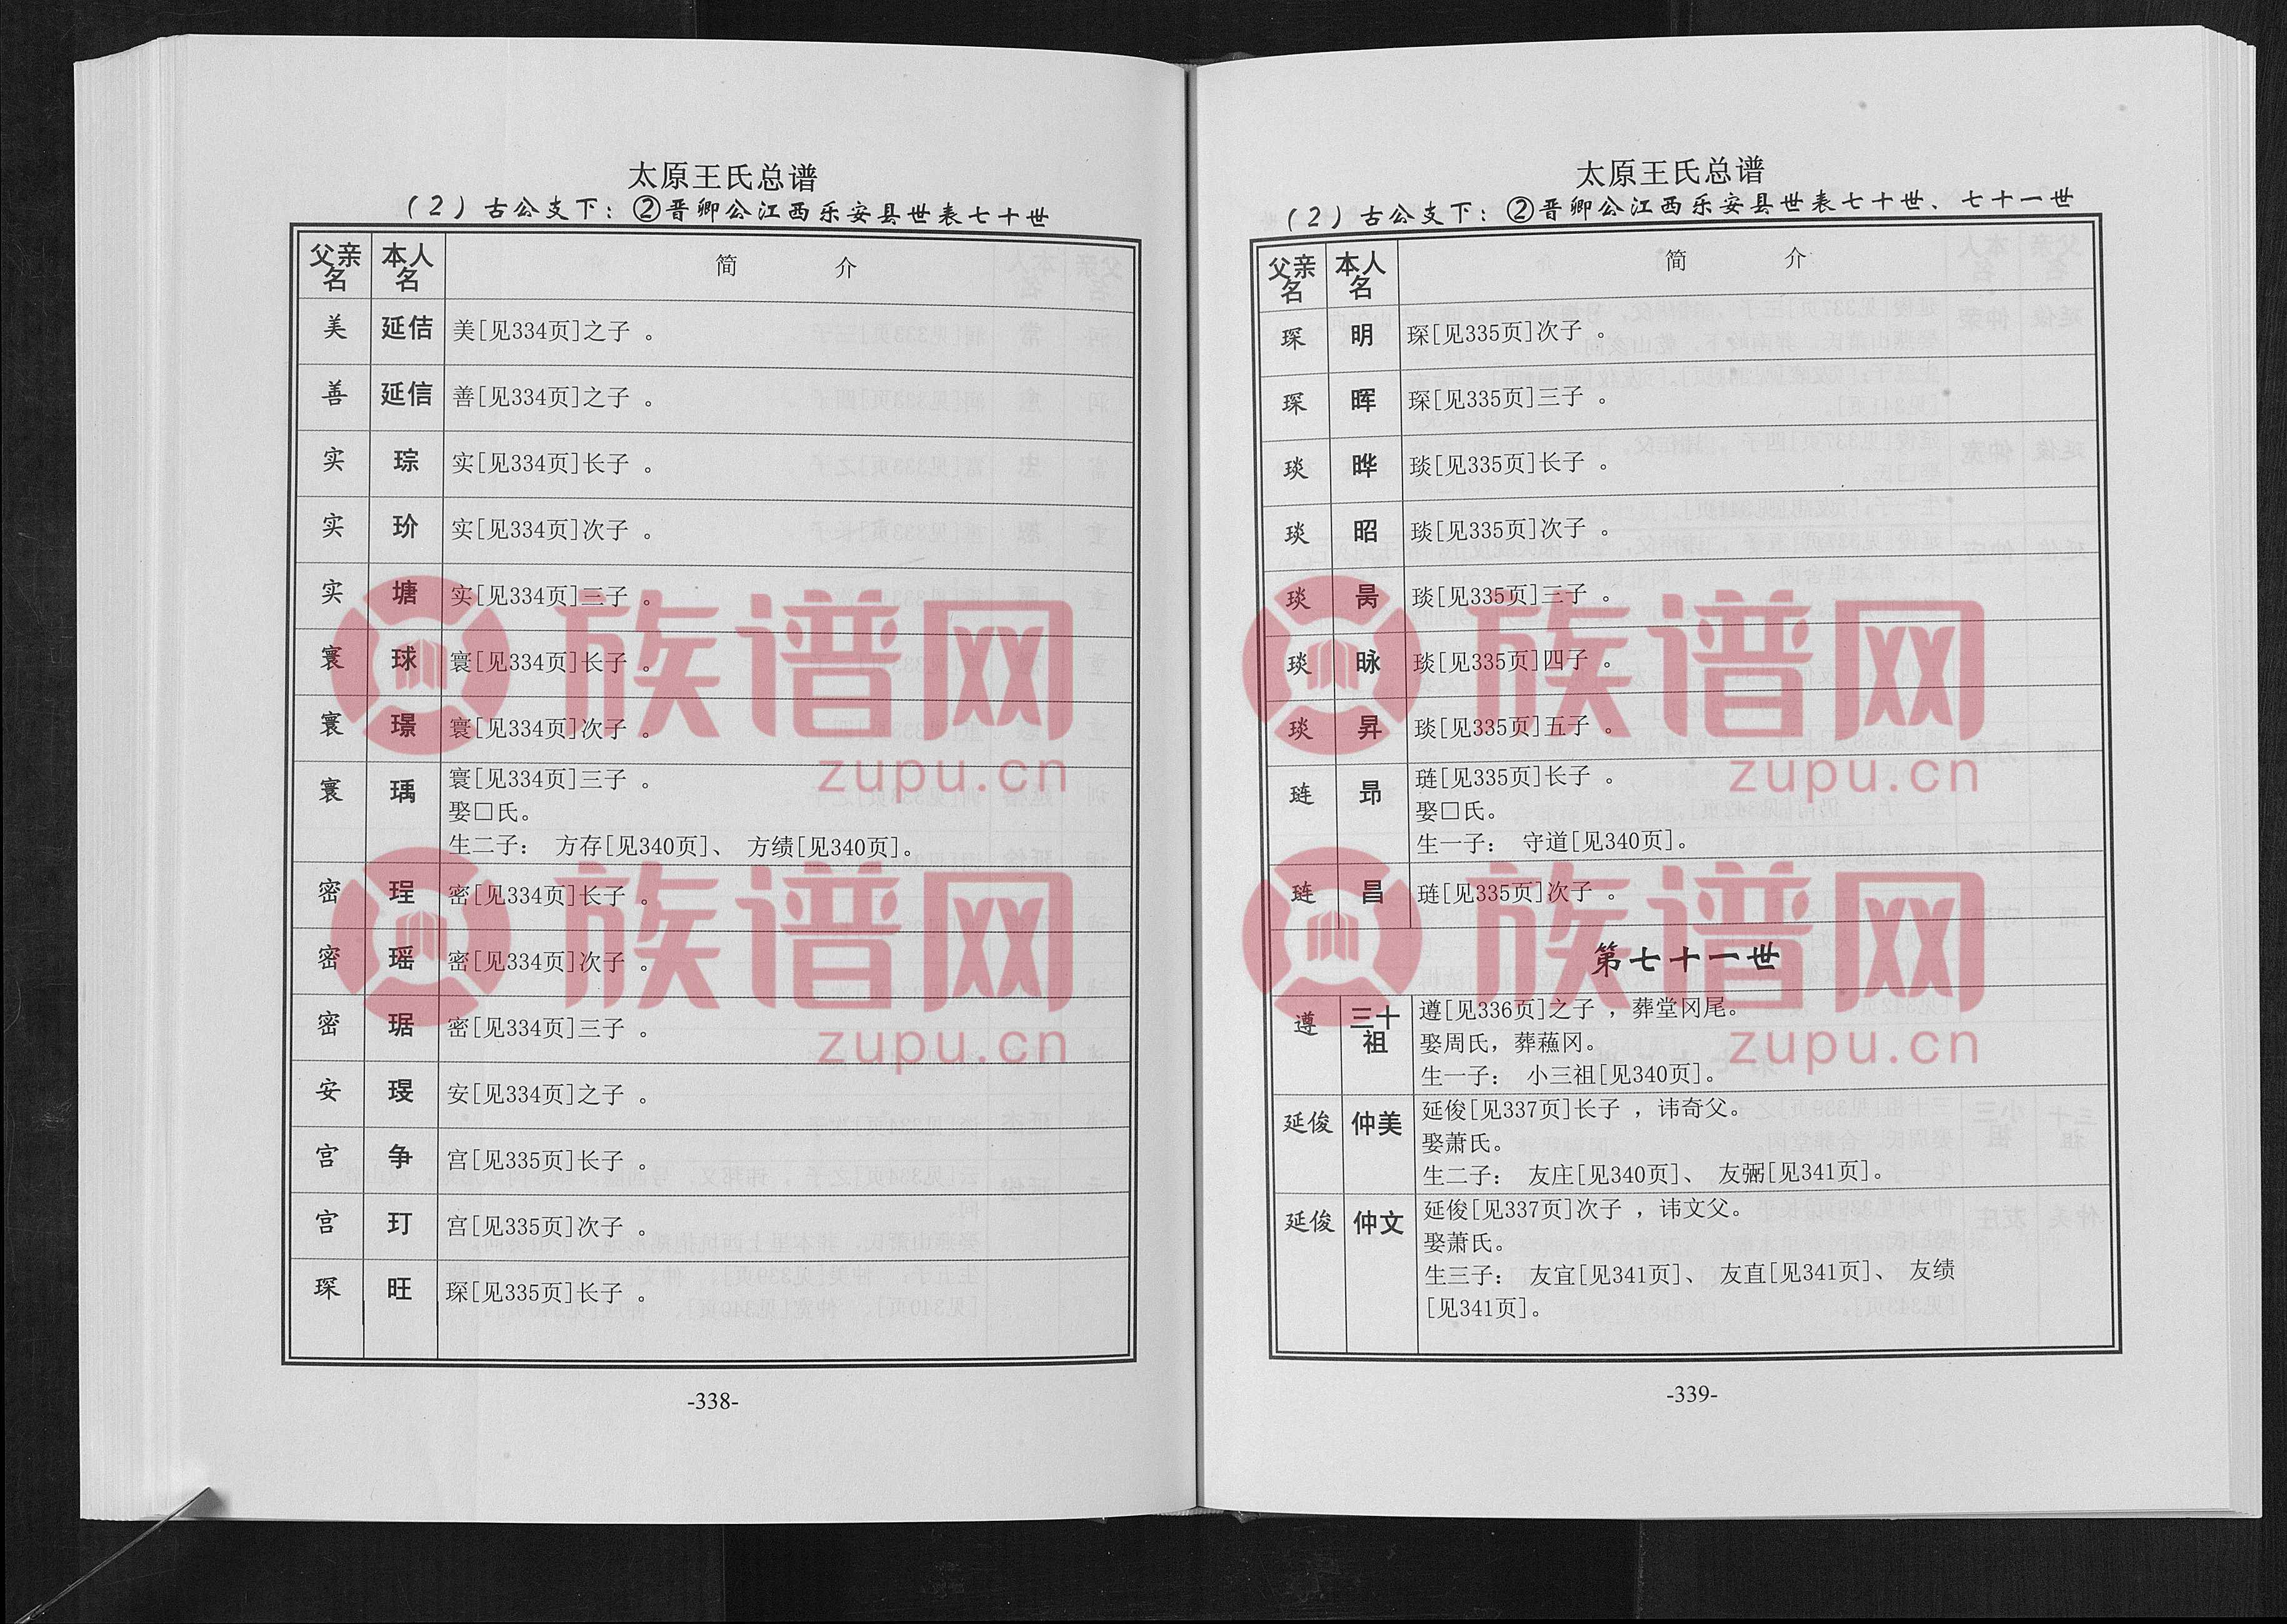 太原王氏总谱
(2)古公支下：②晋卿公江西乐安县世表七十世
父亲名 本人名 简 介
美 延佶 美[见334页]之子 。
善 延信 善[见334页]之子 。
实 琮 实[见334页]长子 。
实 玠 实[见334页]次子 。
实 塘 实[见334页]三子 。
寰 球 寰[见334页]长子 。
寰 璟 寰[见334页]次子 。
寰 瑀 寰[见334页]三子 。
娶□氏。
生二子： 方存[见340页]、 方绩[见340页]。
密 珵 密[见334页]长子 。
密 瑶 密[见334页]次子 。
密 琚 密[见334页]三子 。
安 安[见334页]之子 。
宫 争 宫[见335页]长子 。
宫 玎 宫[见335页]次子 。
琛 旺 琛[见335页]长子 。
-338-
太原王氏总谱
(2)古公支下：②晋卿公江西乐安县世表七十世、七十一世
父亲名 本人名 简 介
琛 明 琛[见335页]次子 。
琛 晖 琛[见335页]三子 。
琰 晔 琰[见335页]长子 。
琰 昭 琰[见335页]次子 。
琰 琰[见335页]三子 。
琰 昹 琰[见335页]四子 。
琰 昇 琰[见335页]五子 。
琏 昴 琏[见335页]长子 。
娶□氏。
生一子： 守道[见340页]。
琏 昌 琏[见335页]次子 。
第七十一世
遵 三十祖 遵[见336页]之子 ，葬堂冈尾。
娶周氏，葬蘓冈。
生一子： 小三祖[见340页]。
延俊 仲美 延俊[见337页]长子 ，讳奇父。
娶萧氏。
生二子： 友庄[见340页]、 友弼[见341页]。
延俊 仲文 延俊[见337页]次子 ，讳文父。
娶萧氏。
生三子： 友宜[见341页]、 友直[见341页]、 友绩
[见341页]。
-339-
族谱网
zupu.cn
族谱网
zupu.cn
族谱网
zupu.cn
族谱网
zupu.cn